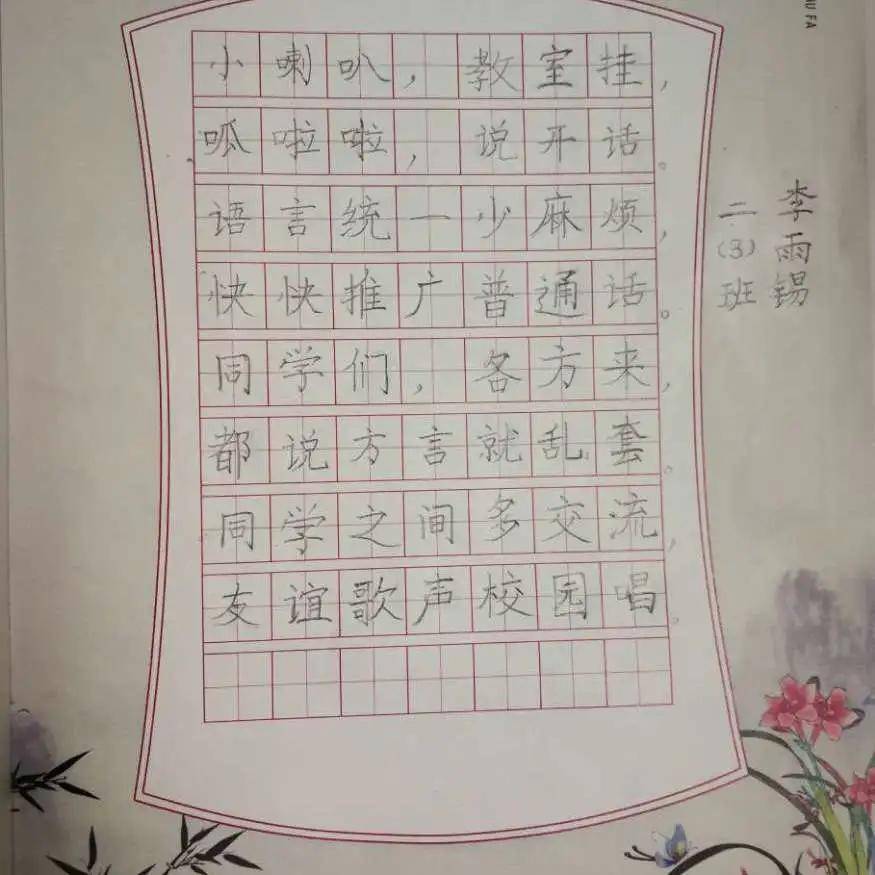 小喇叭，教室挂，
呱啦啦，说开话。
语言统一少麻烦，
快快推广普通话。
同学们，各方来，
都说方言就乱套。
同学之间多交流，
友谊歌声校园唱。
李雨锡
二(3)班
U FA